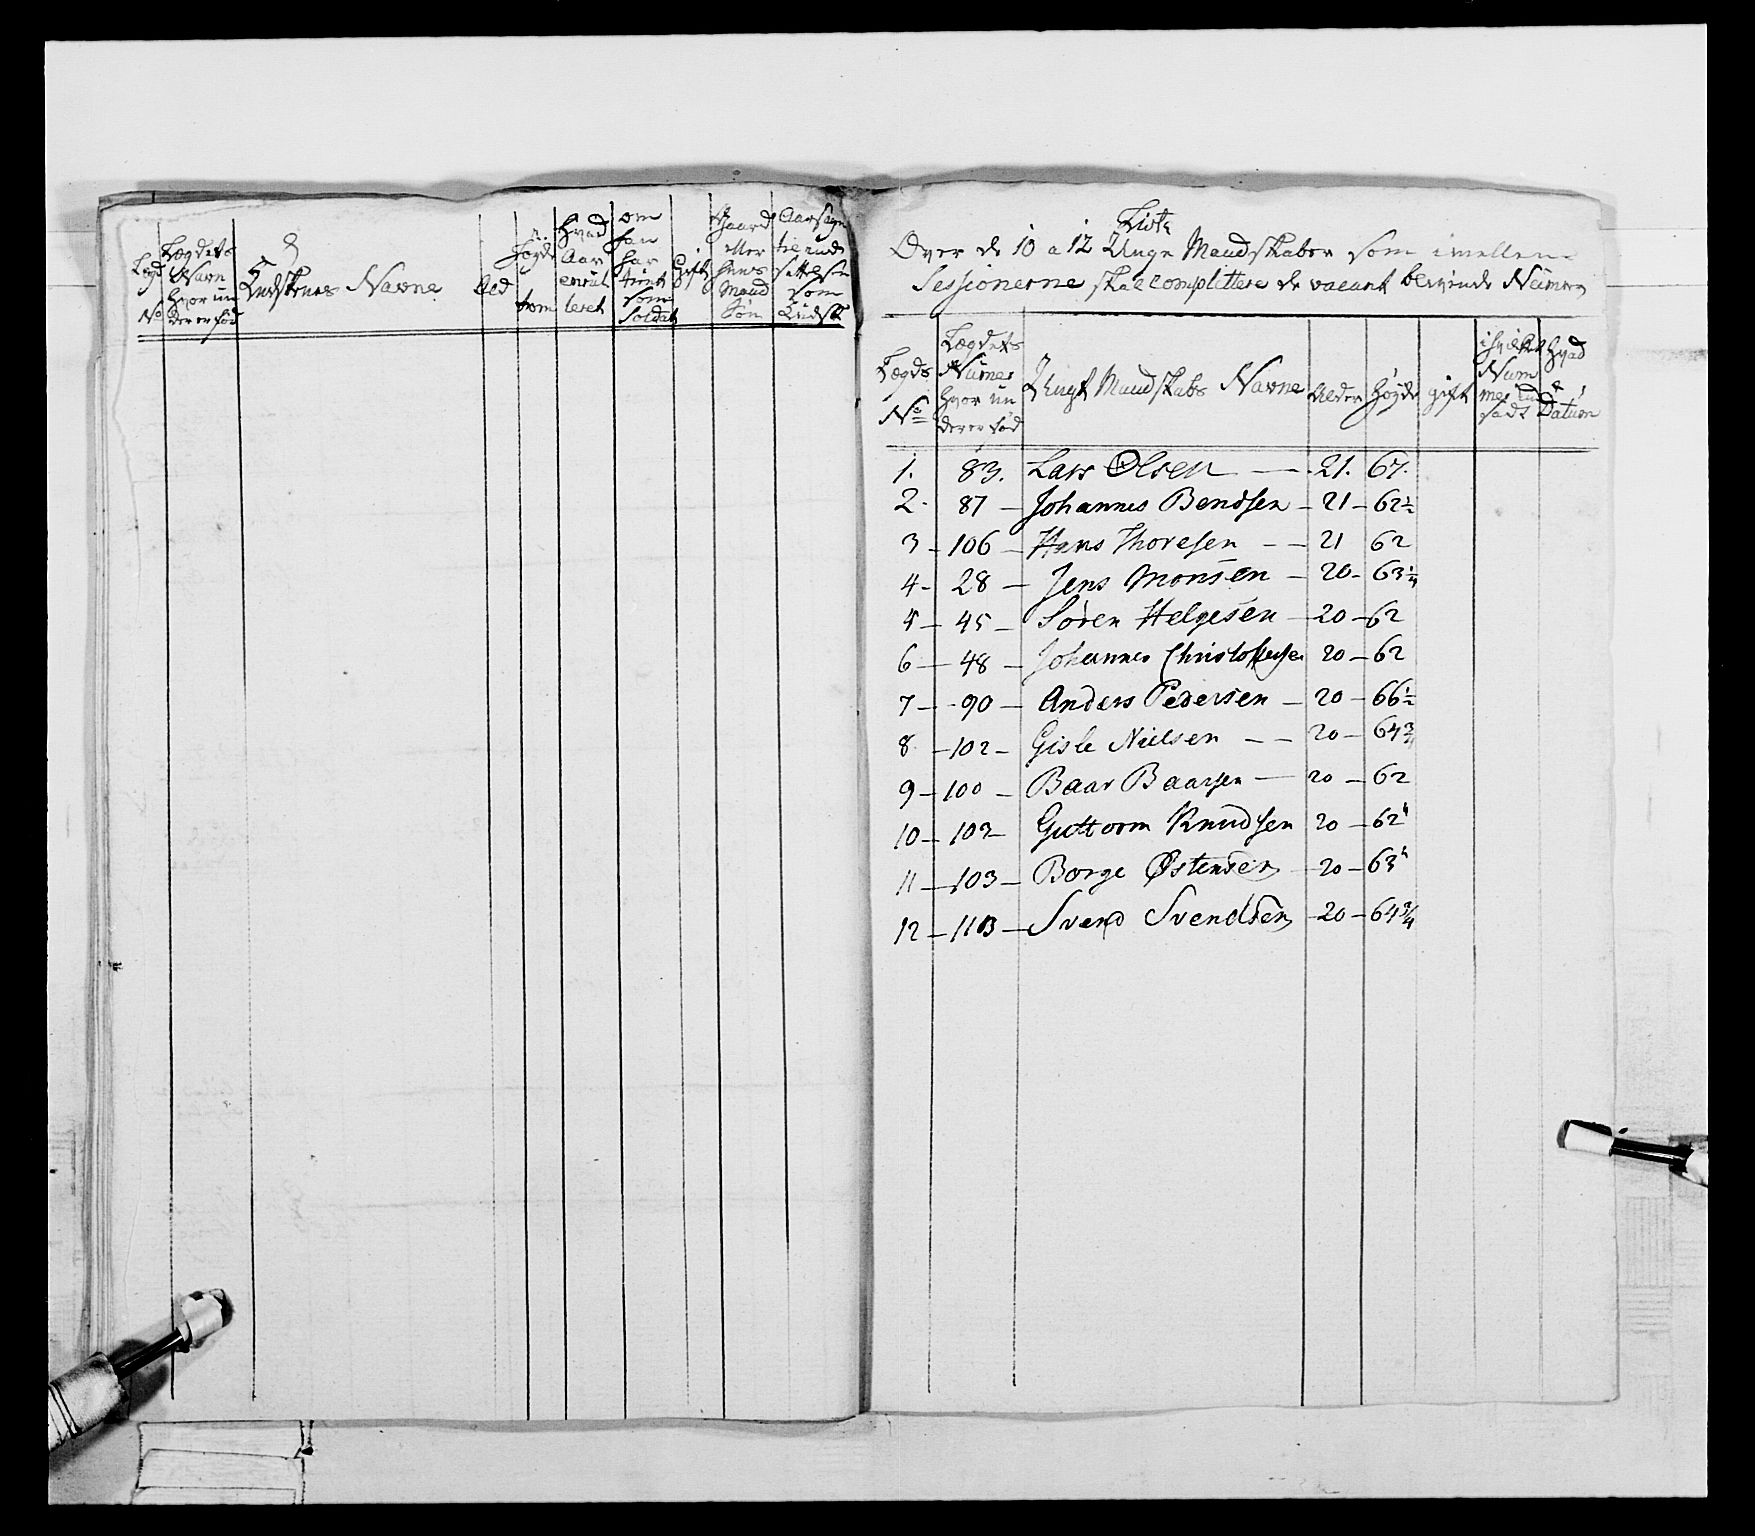 Lægd
No
Lægdets
Navn
hvor un
der er fød
Knegtenes Navne
Ald
fom
Hvad
Aar
enrul
leret
om
han
har
tient
som
Soldat
Gift
Gaard
eller
huus
Mand
Søn
Aarsagen
til
som
Liste
Over de 10 a 12 Unge Mandskaber som imellem
Sessionerne skal complettere de vacant blivende Numere
Lægds
No
Lægdets
Numer
hvor un
der er fød
Ungt Mandskabs Navne
Alder
Høyde
gift
i hvilket
Num
mer ind
sadt
Hvad
Datum
1. 83. Lars Olsen — 21. 67.
2. 87 — Johannes Bendsen — 21 — 62½
3 — 106 — Hans Thoresen — — 21 62
4 — 28 — Jens Monsen — 20 — 63¼
5 — 45 — Søren Helgesen — 20 — 62
6 — 48 — Johannes Christoffersen 20 — 62
7 — 90 — Anders Pedersen — 20 — 66½
8 — 102 — Gisle Nielsen — — 20 — 64¾
9 — 100 — Baar Baarsen — 20 — 62
10 — 102 — Guttorm Knudsen 20 — 62
11 — 103 — Borge Østensen — 20 — 63
12 — 113 — Svend Svendsen — 20 — 64¾